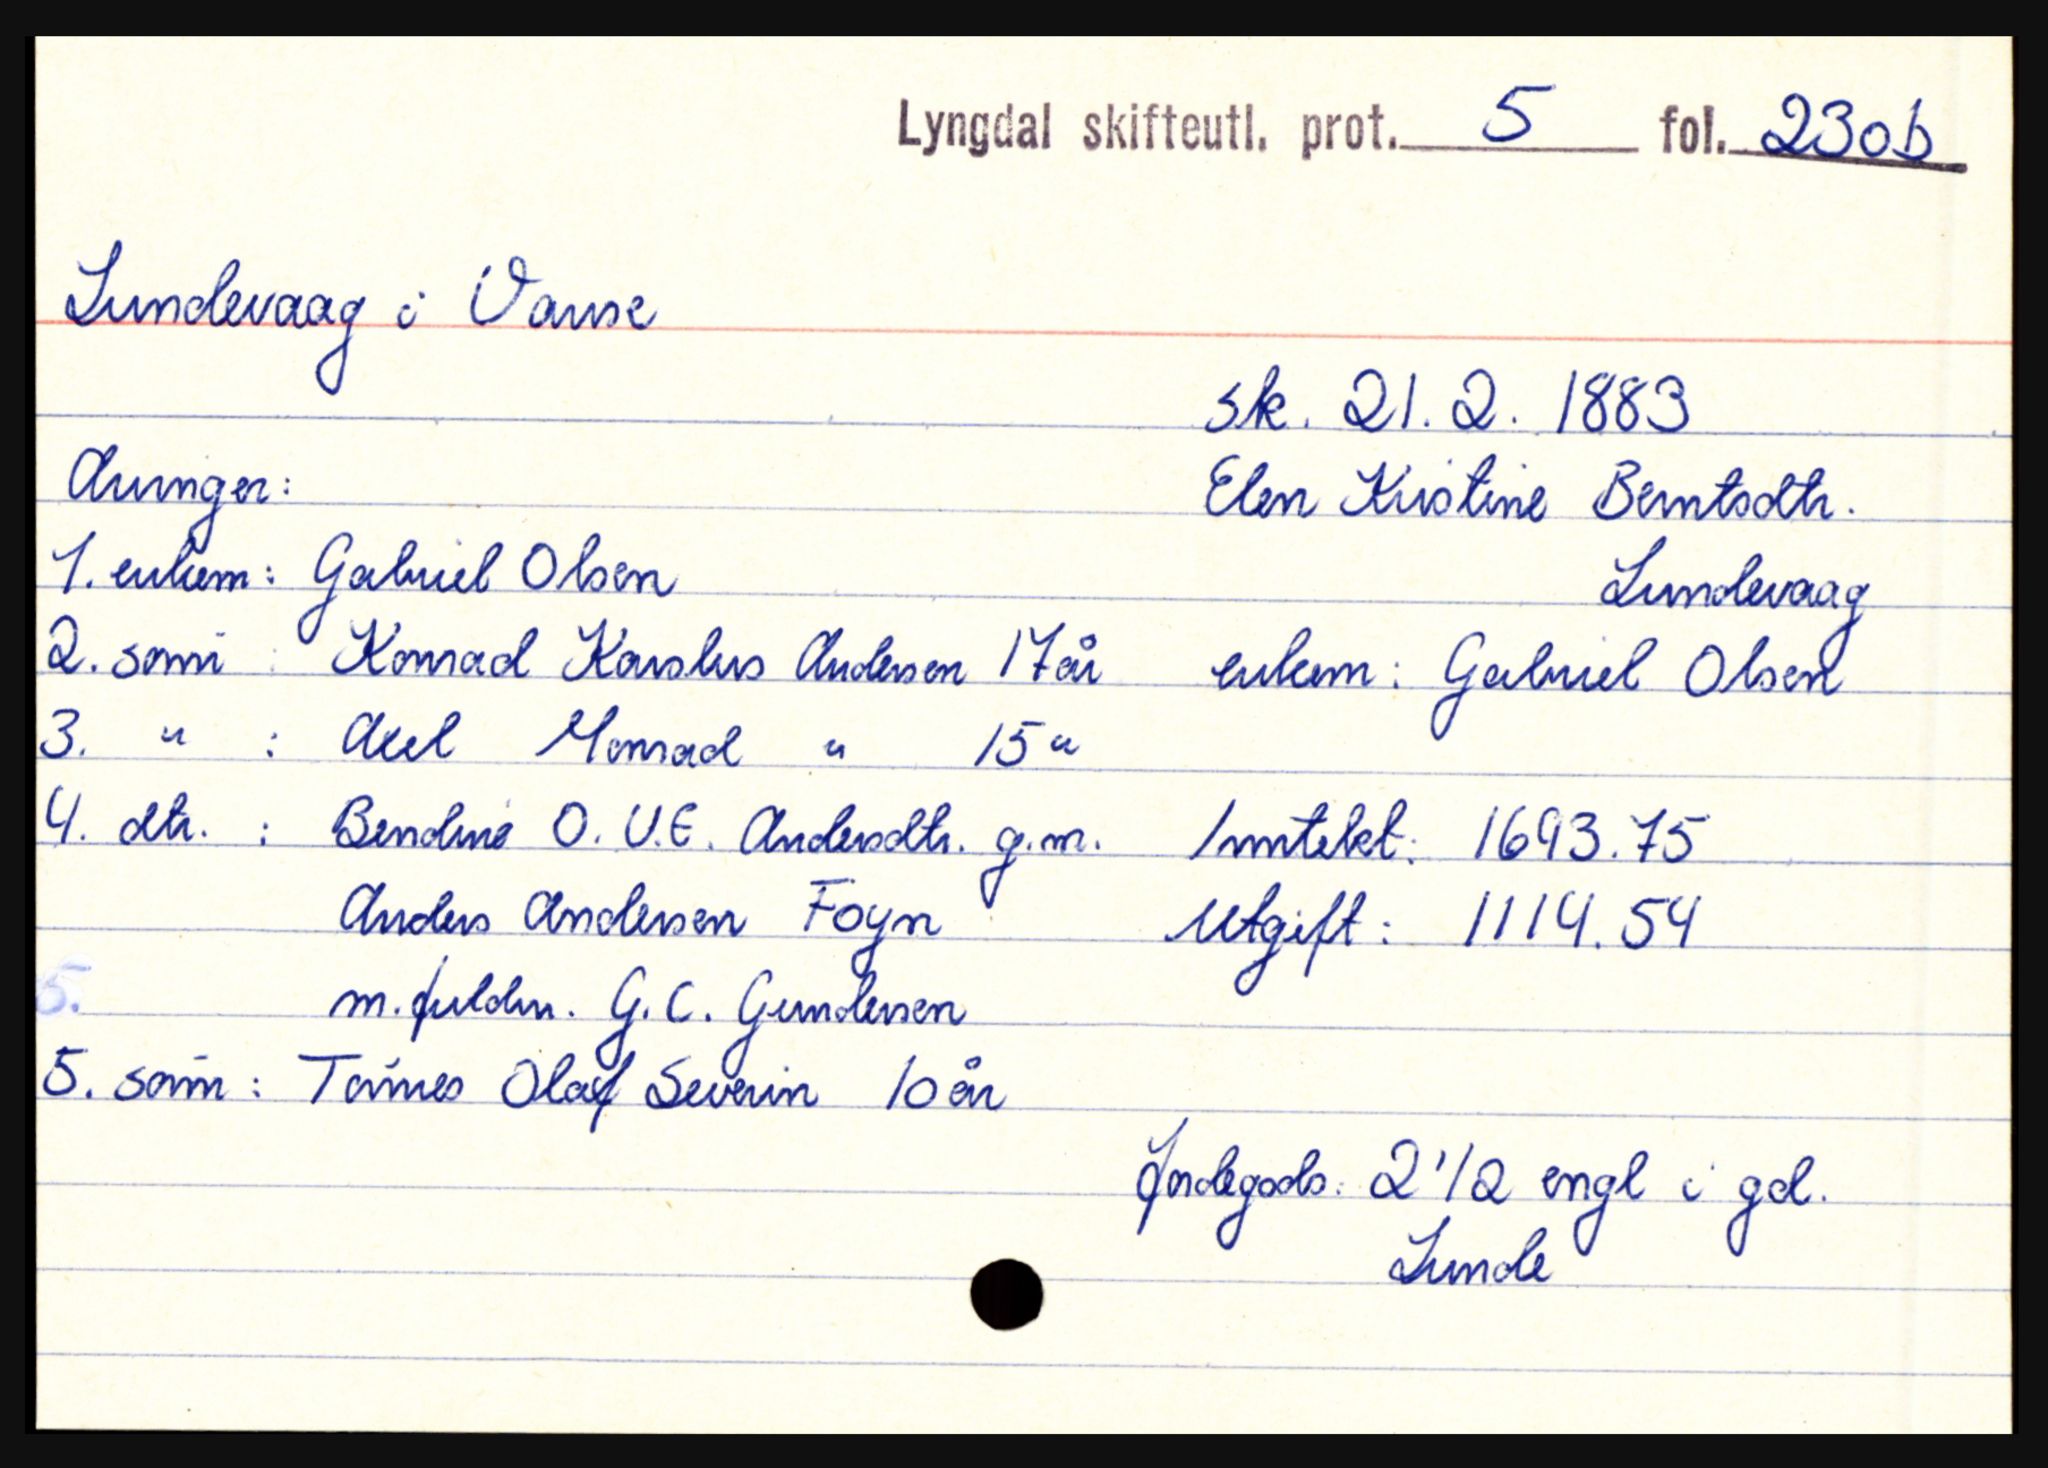 Lyngdal skifteutl. prot. 5 fol. 230b
Lundevaag i Vanse
sk. 21.2. 1883
Elen Kristine Berntsdtr.
Lundevaag
enkem: Gabriel Olsen
Inntekt: 1693.75
Utgift: 1114.54
Jordegods: 2 1/2 engl i gd.
Lunde
Arvinger:
1. enkem: Gabriel Olsen
2. sønn : Konrad Andersen 17 år
3. " : Axel Monrad " 15 "
4. dtr. : Bendine O. V. E. Andersdtr. g.m.
Anders Andersen Foyn
5.
m. fuldm. G. C. Gundersen
5. sønn : Tønnes Olaf Severin 10 år